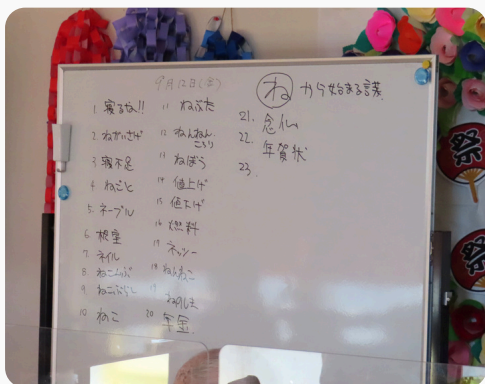 9月12日(金)
ね から始まる言葉
1. 寝るな!!
2 ねがいさげ
3 寝不足
4 ねごと
5. ネーブル
6 根室
7. ネイル
8 ねこんぶ
9
10 ねこ
11 ねぶた
12 ねんねん
ころり
13 ねぼう
14 値上げ
15 値下げ
16 燃料
17 ネッシー
18 ねんねこ
19
20 年金
21. 念仏
22. 年賀状
23.
祭
祭